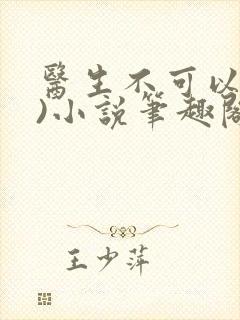 醫生不可以
)小說筆趣閣
王少萍